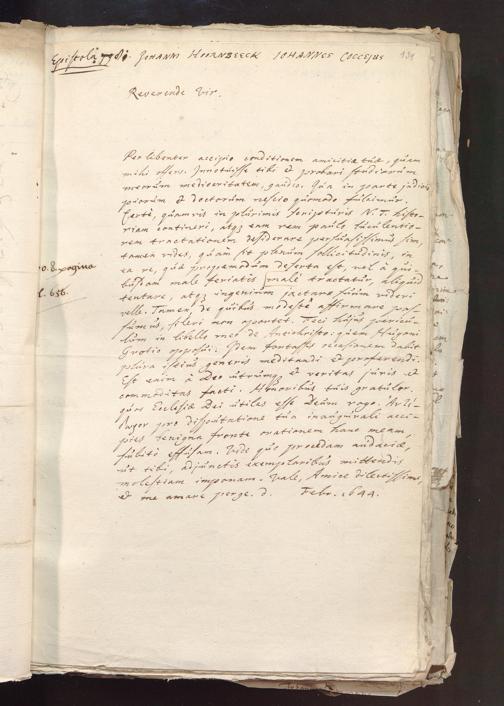 Epistola 79. JOHANNI HOORNBEECK JOHANNES COCCEJUS
131
Reverende Vir.
Per libenter accipio conditionem amicitiæ tuæ, quam
mihi offers. Innotuisse tibi et probari studiorum
meorum mediocritatem, gaudeo. Qua in parte judicio
piorum et doctorum nescio quomodo fulcimur.
Certè, quamvis in plurimis Scripturis N. T. histo-
riam contineri, atque eam rem paulo luculentio-
rem tractationem desiderare persuasissimus sim
tamen vides, quam sit planum sollicitudinis, in
ea re, quæ propemodum deserta est, vel a qui-
busdam male feriatis malè tractatur, aliquid
tentare, atque ingenium jactare suum videri
velle. Tamen, de quibus modestè affirmare pos-
sumus, sileri non oportet. Feci hujus pericu-
lum in libello meo de Antichristo: quem Hugoni
Grotio opposui. Idem fortasse occasionem dabit
plura istius generis meditandi et proferendi.
Est enim à Deo utrumque et veritas juris et
commoditas facti. Honoribus tuis gratulor.
quos Ecclesiæ Dei utiles esse Deum rogo.
pro disputatione tua inaugurali acci-
pies benigna fronte orationem hanc meam,
subitò effusam. Vide quo procedam audaciæ,
ut tibi, adjunctis exemplaribus mittendis
molestiam imponam. Vale, Amice dilectissime,
et me amare perge. d. Febr. 1644.
pagina
656.